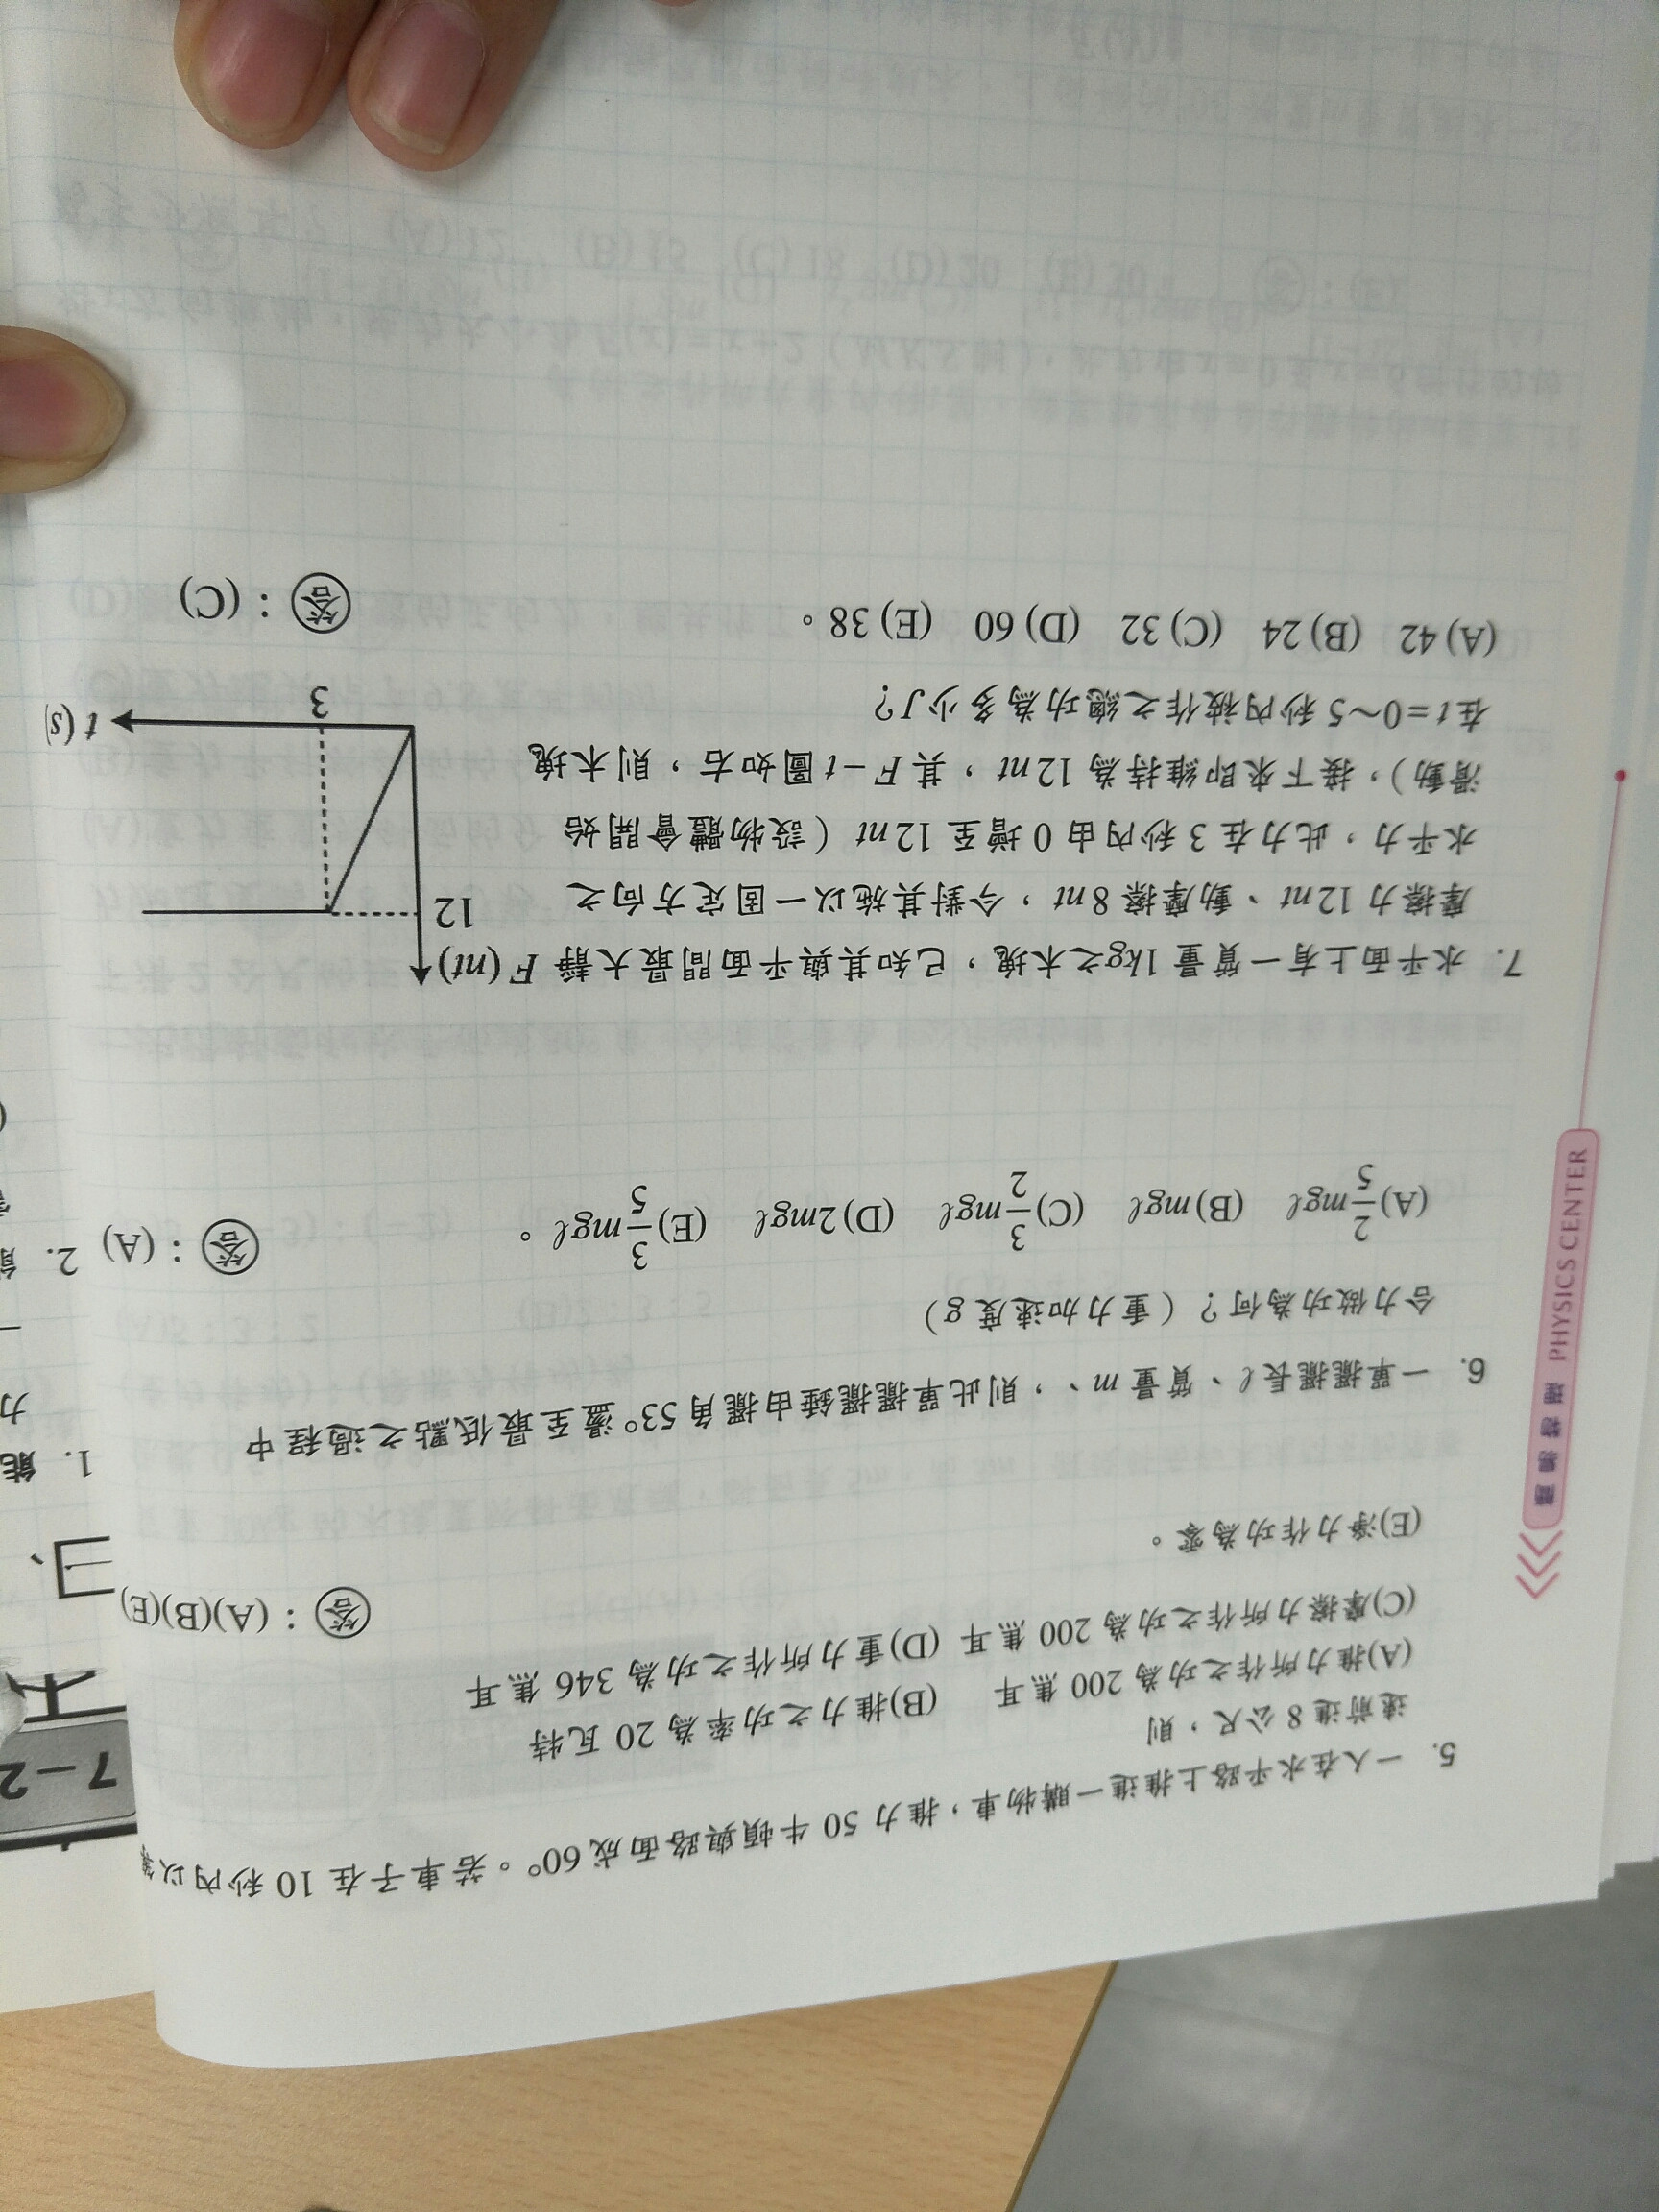 5. 一人在水平路上推進一購物車，推力 50 牛頓與路面成 60°。若車子在 10 秒內以等
速前進 8 公尺，則
(A)推力所作之功為 200 焦耳 (B)推力之功率為 20 瓦特
(C)摩擦力所作之功為 200 焦耳 (D)重力所作之功為 346 焦耳
(E)淨力作功為零。
答：(A)(B)(E)
6. 一單擺擺長ℓ、質量 m、，則此單擺擺錘由擺角 53°盪至最低點之過程中
合力做功為何？（重力加速度 g）
(A) 2/5 mgℓ (B) mgℓ (C) 3/2 mgℓ (D) 2mgℓ (E) 3/5 mgℓ。
答：(A)
7. 水平面上有一質量 1kg之木塊，已知其與平面間最大靜
摩擦力 12nt、動摩擦 8nt，今對其施以一固定方向之
水平力，此力在 3 秒內由 0 增至 12nt（設物體會開始
滑動），接下來即維持為 12nt，其 F－t圖如右，則木塊
在 t=0～5 秒內被作之總功為多少J？
(A) 42 (B) 24 (C) 32 (D) 60 (E) 38。
答：(C)
F (nt)
12
3
t (s)
PHYSICS CENTER
7－2
三、
1. 能
力
一
2.